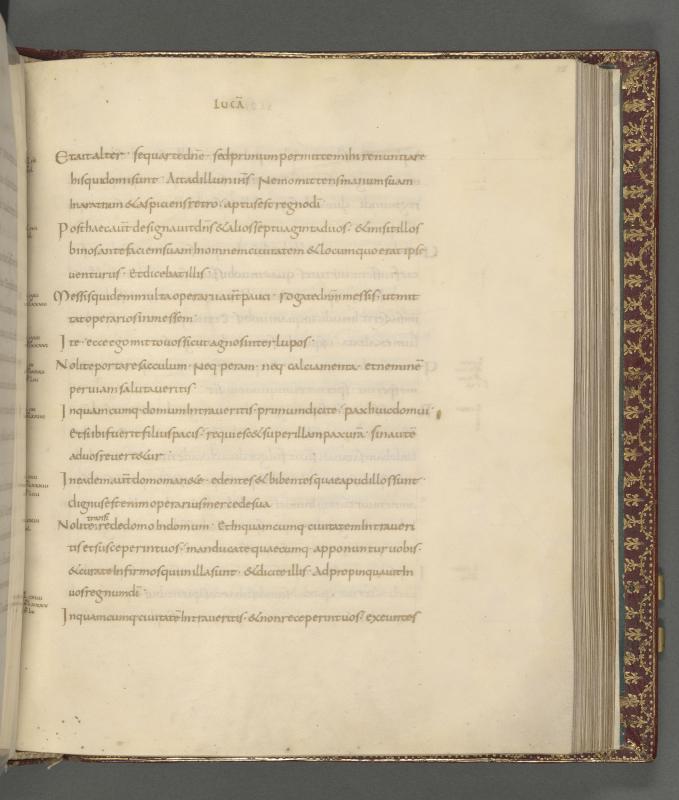 LUCĀ
Et ait alter · sequar te dn̄e · sed primum permitte mihi renuntiare
his qui domi sunt · Ait ad illum ih̄s · Nemo mittens manum suam
In aratrum & aspiciens retro · aptus est regno dī
Post haec aūt designauit dn̄s & alios septuaginta duos · & misit illos
binos ante faciem suam In omnem ciuitatem & locum quo erat ipse
uenturus · Et dicebat illis ·
Messis quidem multa operarii aūt pauci · rogate dn̄m messis · ut mit
tat operarios in messem
Ite · ecce ego mitto uos sicut agnos inter lupos ·
Nolite portare sacculum · neq· peram · neq· calciamenta · et neminē
per uiam salutaueritis ·
In quamcumq· domum Intraueritis · primum dicite · pax huic domui ·
et si ibi fuerit filius pacis · requiesc& super illam pax urā · sin autē
ad uos reuert&ur ·
In eadem aūt domo man&e · edentes & bibentes quae apud illos sunt ·
dignus est enim operarius mercede sua
Nolite transire de domo In domum · Et In quamcumq· ciuitatem Intraueri
tis et susceperint uos · manducate quaecumq· apponuntur uobis ·
& curate Infirmos qui in illa sunt · & dicite illis · Adpropinquauit In
uos regnum dī
In quamcumq· ciuitatē Intraueritis · & non receperint uos · exeuntes